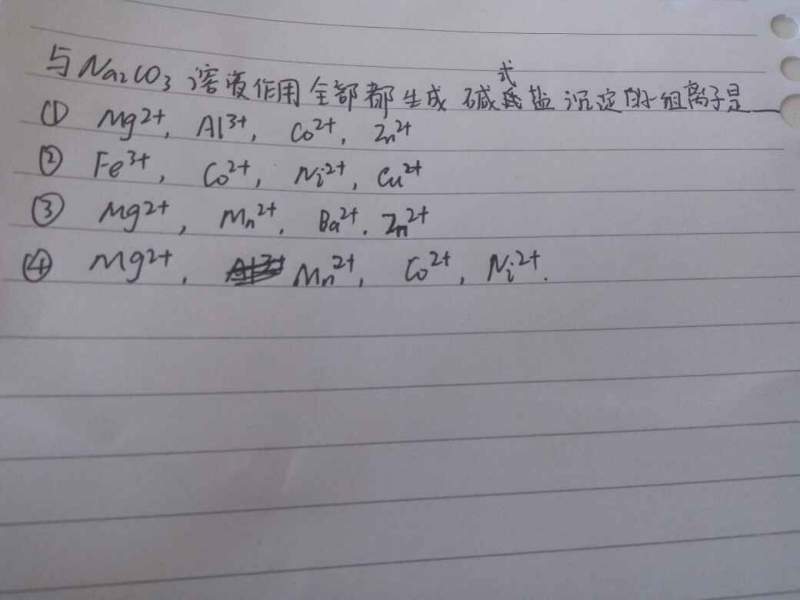 与Na2CO3溶液作用全部都生成碱式盐沉淀的一组离子是___
① Mg2+, Al3+, Co2+, Zn2+
② Fe3+, Co2+, Ni2+, Cu2+
③ Mg2+, Mn2+, Ba2+, Zn2+
④ Mg2+, Mn2+, Co2+, Ni2+.